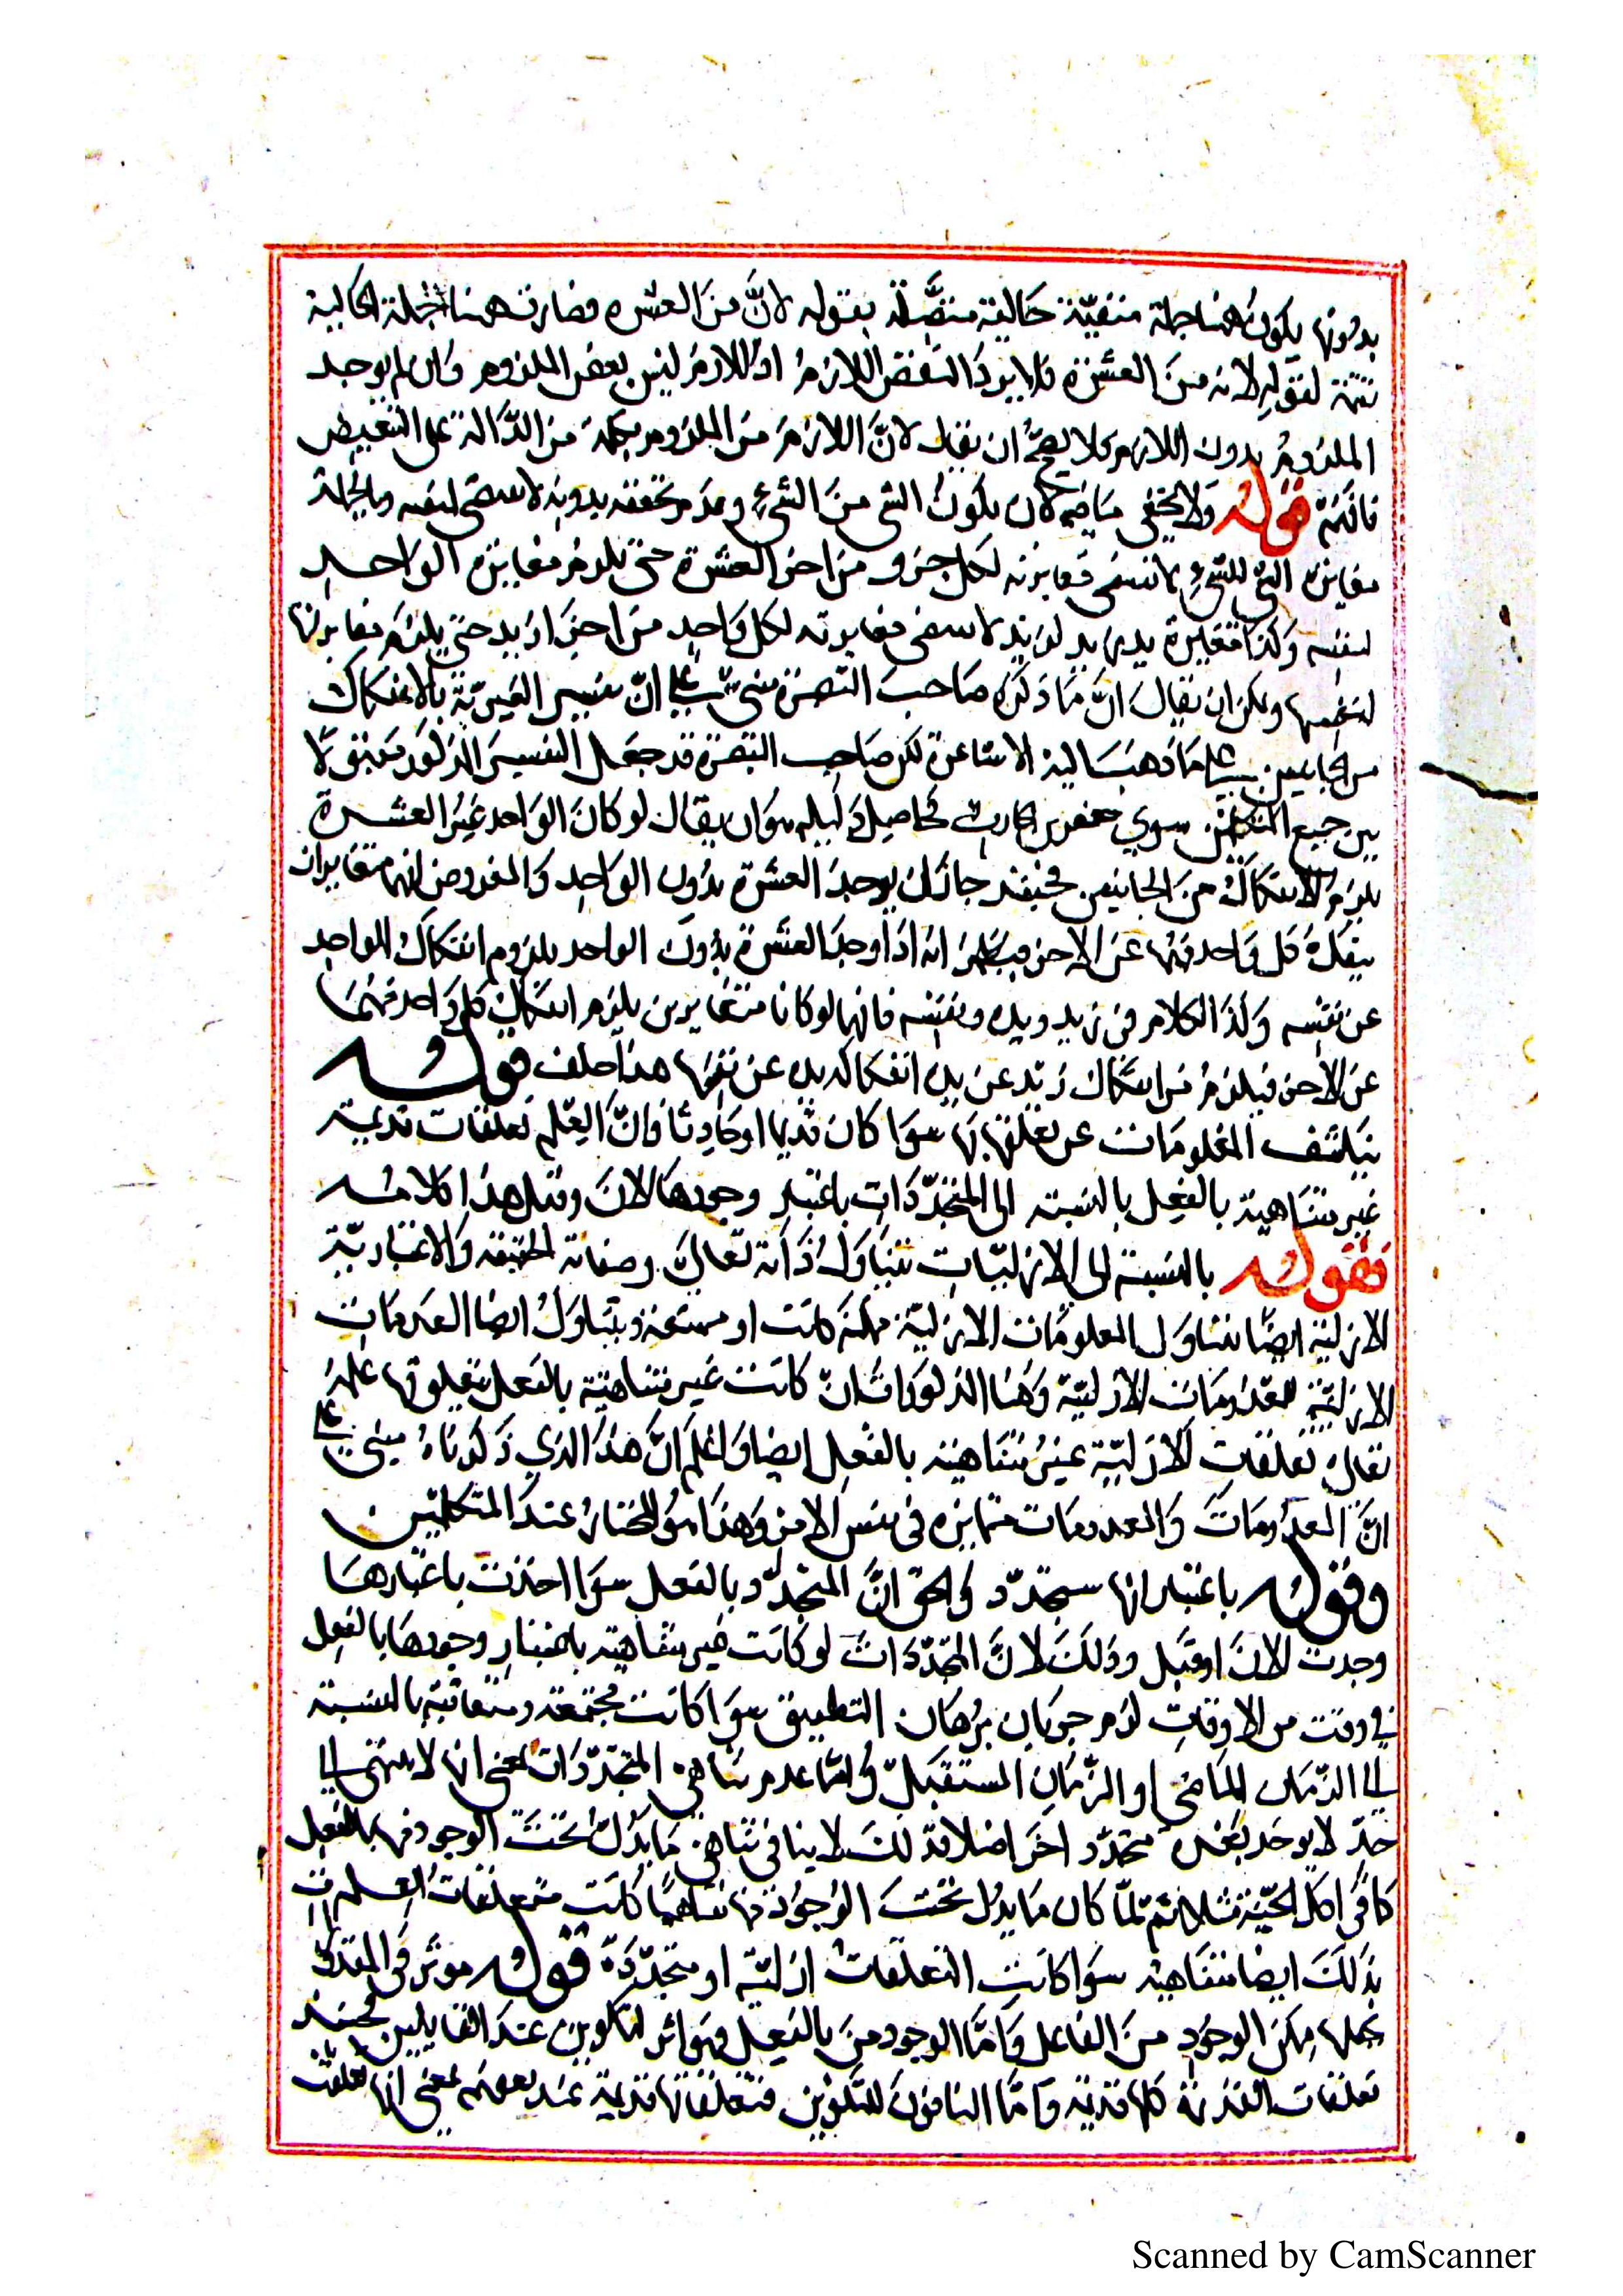 بدونها يكون ههنا جملة منفيّة حالية متصلة بقوله لانّ من العشره فصارت ههنا الجملة الحالية
تتمّة لقوله لانه من العشرة فلا يرد النقض اللازم اذ اللازم ليس بعض الملزوم وان لم يوجد
الملزوم بدون اللازم فلا يصحّ ان يقال لانّ اللازم من الملزوم بكلمة من الدّالة على التبعيض
فافهم قوله ولا يخفى ما فيه لان يكون الشئ من الشئ وعدم تحققه بدونه لا يقتضى لنفسه وبالجملة
مغايرة الشئ للشئ لا تقتضى مغايرته لكل جزو من اجز العشرة حتى يلزم مغايرة الواحد
لنفسه وكذا مغايرة يد زيد لزيد لا يقتضى مغايرته لكل واحد من اجزا زيد حتى يلزم مغايرتها
لنفسها ويمكن ان يقال انّ ما ذكره صاحب التبصرة مبنى على انّ تفسير الغيريّة بالانفكاك
من الجانبين على ما ذهب اليه الاشاعرة لكن صاحب التبصرة قد جعل التفسير المذكور متفقا
بين جميع المتكلمين سوي جعفر بن الحارث فحاصل دليله هو ان يقال لو كان الواحد غير العشرة
يلزم الانفكاك من الجانبين فحينئذ جاز ان يوجد العشرة بدون الواحد والمفروض انهما متغايران
ينفك كل واحد منهما عن الاخر فيظهر انه اذا وجد العشرة بدون الواحد يلزم انفكاك الواحد
عن نفسه وكذا الكلام في زيد ويده ونفسه فانهما لو كانا متغايرين يلزم انفكاك كل واحد منهما
عن الاخر فيلزم من انفكاك زيد عن يده انفكاك يده عن نفسها هذا خلف قوله
ينكشف المعلومات عن تعلقها بها سوا كان قديما او حادثا فانّ العلم تعلقات قديمة
غير متناهية بالفعل بالنسبة الى المتجدّدات باعتبار وجودها الان وقبل هذا كلامه
فقوله بالنسبة الى الازليّات يتناول ذاته تعالى وصفاته الحقيقة والاعتباريّة
الازليّة ايضا يتناول المعلومات الازليّة ممكنة كانت او ممتنعة ويتناول ايضا العدمات
الازليّة للمعدومات الازليّة وهذا المذكورات انّ كانت غير متناهية بالفعل يتعلق بها علمه
تعالى تعلقات الازليّة غير متناهية بالفعل ايضا واعلم انّ هذا الذي ذكرناه مبنى على
انّ المعدومات والمعدومات متمايزه في نفس الامر وهذا هو المختار عند المتكلمين
وقوله باعتبار انها ستجدّد والحق انّ المتجدّد بالفعل سوا اخذت باعتبارها
وجدت الان او قبل وذلك لانّ المتجدّدات لو كانت غير متناهية باعتبار وجودها بالفعل
في وقت من الاوقات لزم جريان برهان التطبيق سوا كانت مجتمعة ومتعاقبة بالنسبة
الى الزمان الماضي او الزمان المستقبل وامّا عدم تناهي المتجدّدات بمعنى انها لا تنتهى الى
حدّ لا يوجد بعده متجدّد اخر اصلا فذلك لا ينافي تناهي ما يدخل تحت الوجود منها بالفعل
كما في اكل الجنّة مثلا ثم لمّا كان ما يدخل تحت الوجود منها متناهيا كانت متعلقات العلم
بذلك ايضا متناهية سوا كانت التعلقات ازليّة او متجدّدة قوله موثر في المقدورات
بجعلها ممكن الوجود من الفاعل وامّا الوجود من بالفعل فهو اثر التكوين عند القايلين فحينئذ
تعلقات القدرة كلها قديمة وامّا النافون للتكوين فتعلقاتها قديمة عند بعضهم بمعنى انها تعلقت
Scanned by CamScanner